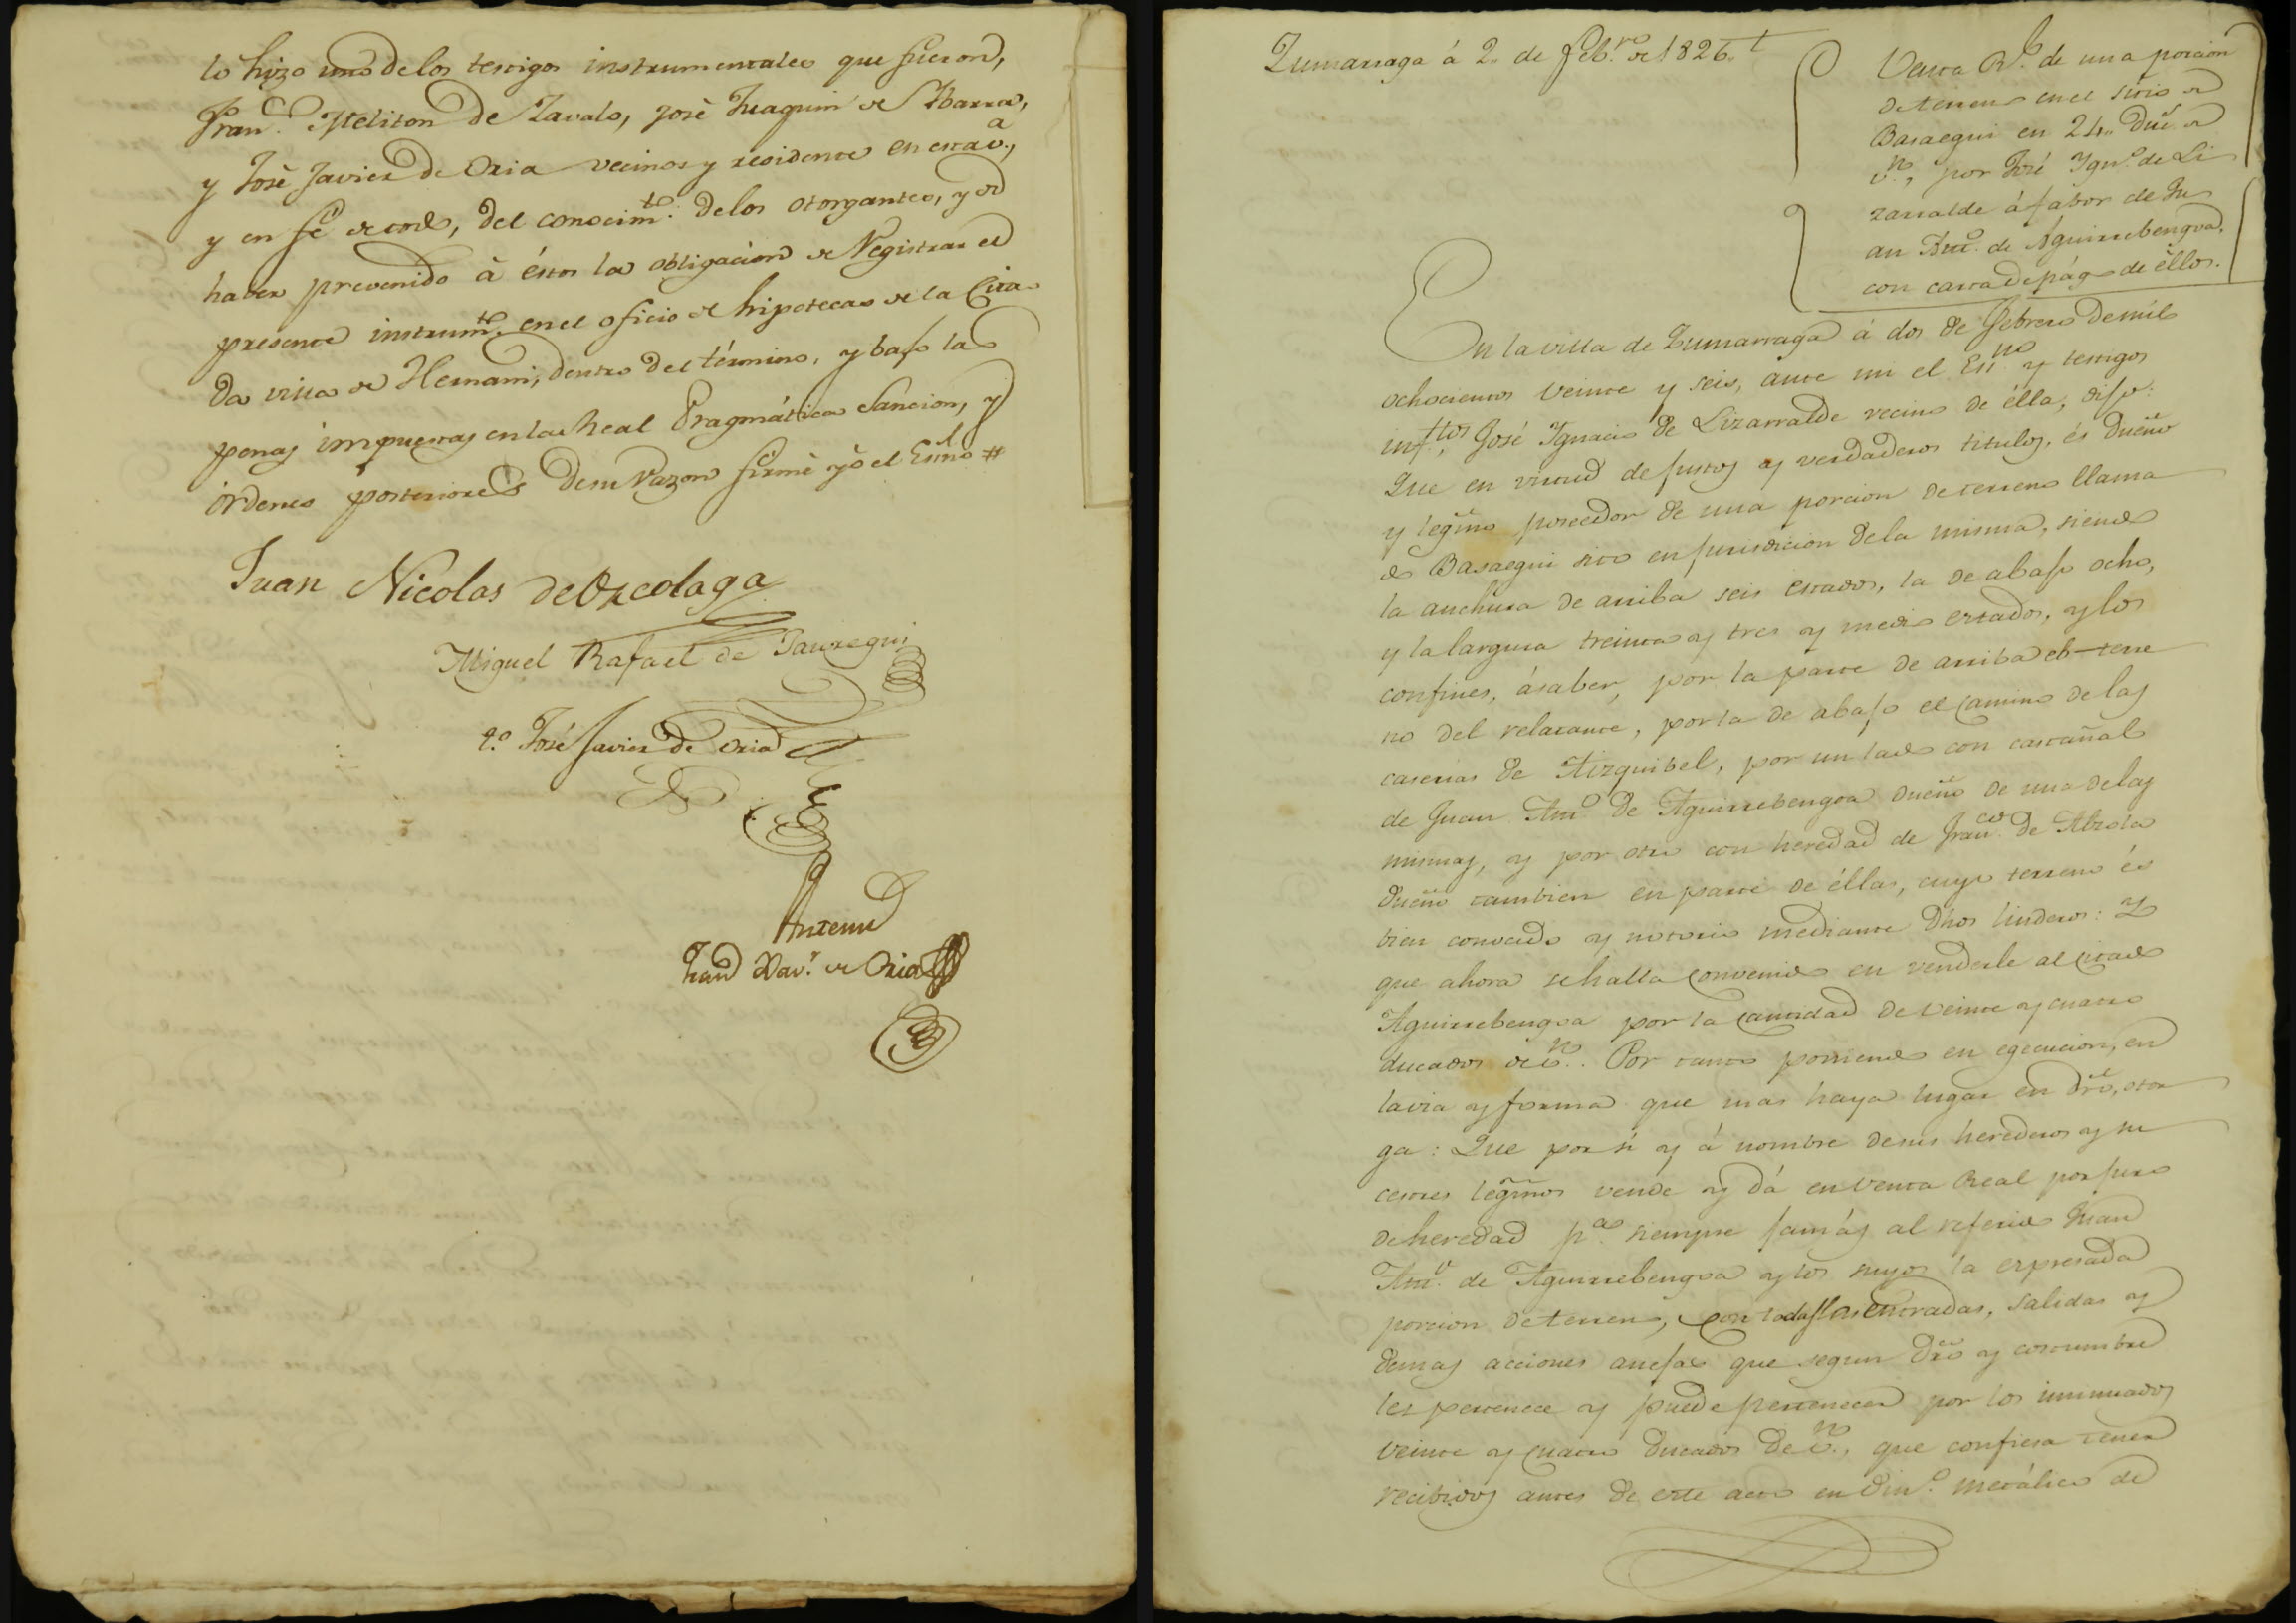 lo hizo uno de los testigos instrumentales que fueron,
Fran.co Meliton de Zavalo, José Juaquin de Ybarra,
y José Javier de Oria vecinos y residente en esta v.a,
y en fé de todo, del conocim.to de los otorgantes, y de
haber prevenido á éstos la obligacion de Registrar el
presente instrum.to en el oficio de hipotecas de la Cita
da villa de Hernani, dentro del término, y bajo las
penas impuestas en la Real Pragmática Sancion, y
órdenes posteriores de su razon firmé yo el Esno #
Juan Nicolas de Orcolaga
Miguel Rafael de Jauregui
t.o José Javier de Oria
Antemi
Juan Xav.r de Oria
Zumarraga á 2. de Feb.ro de 1826.
Venta Rl. de una porcion
de terreno en el sitio de
Basaegui en 24. Dus. de
v.n, por José Ygn.o de Li
zarralde á fabor de Ju
an Ant.o de Aguirrebengoa,
con carta de págo de éllos.
En la villa de Zumarraga á dos de Febrero de mil
ochocientos veinte y seis, ante mi el Esno y testigos
inf.tos, José Ygnacio de Lizarralde vecino de élla, dijo:
Que en virtud de justos y verdaderos titulos, és dueño
y legmo poseedor de una porcion de terreno llama
do Basaegui sito en jurisdicion de la misma, siendo
la anchura de arriba seis estados, la de abajo ocho,
y la largura treinta y tres y medio estados, y los
confines, ásaber, por la parte de arriba el terre
no del relatante, por la de abajo el camino de las
caserias de Aizquibel, por un lado con castañal
de Juan Ant.o de Aguirrebengoa dueño de una de las
mismas, y por otro con heredad de Fran.co de Alzola
dueño tambien en parte de éllas, cuyo terreno és
bien conocido y notorio mediante dhos linderos: Y
que ahora se halla convenido en venderle al citado
Aguirrebengoa por la cantidad de veinte y cuatro
ducados de v.n. Por tanto poniendo en egecucion, en
la via y forma que mas haya lugar en dro, otor
ga: Que por si y á nombre de sus herederos y su
cesores legmos vende y dá en venta Real por juro
de heredad p.a siempre jamás al referido Juan
Ant.o de Aguirrebengoa y los suyos la expresada
porcion de terreno, con todas las entradas, salidas y
demas acciones anejas que segun dro y costumbre
les pertenece y puede pertenecer por los insinuados
veinte y cuatro ducados de v.n, que confiesa tener
recibidos antes de este acto en din.o metálico de